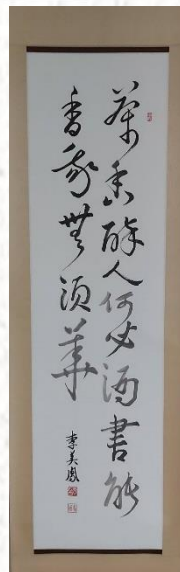 茶亦醉人何必酒書能
香我無須華
李美鳳